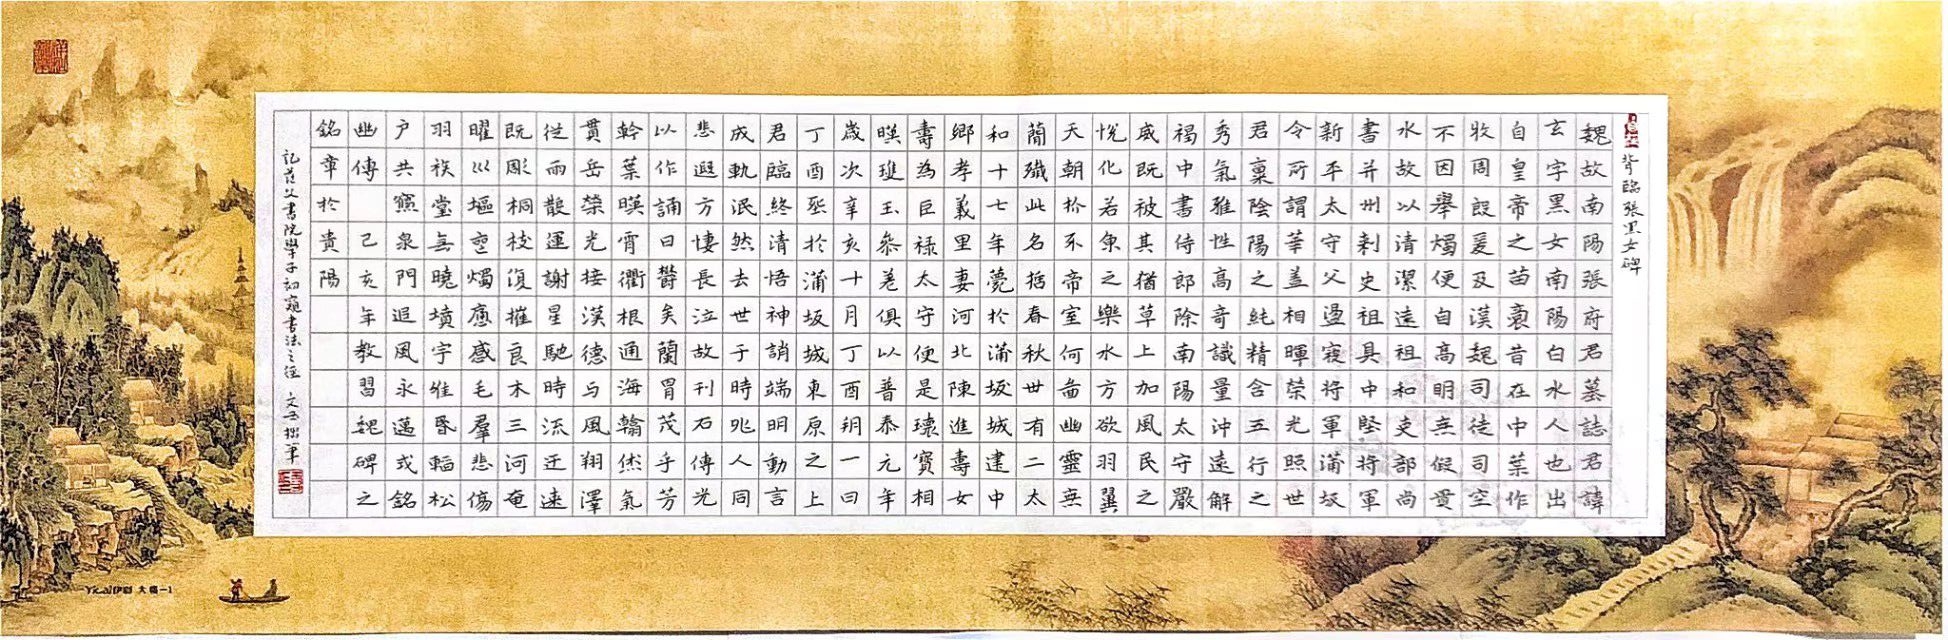 背臨張黑女碑
魏故南陽張府君墓誌君諱
玄字黑女南陽白水人也出
自皇帝之苗裔昔在中葉作
牧周殷爰及漢魏司徒司空
不因舉燭便自高明無假貫
水故以清潔遠祖和吏部尚
書并州刺史祖具中堅將軍
新平太守父盪寇將軍蒲坂
令所謂華蓋相暉榮光照世
君稟陰陽之純精含五行之
秀氣雅性高奇識量沖遠解
褐中書侍郎除南陽太守嚴
威既被其猶草上加風民之
悅化若魚之樂水方欲羽翼
天朝抓牙帝室何啚幽靈無
簡殲此名哲春秋卅有二太
和十七年薨於蒲坂城建中
鄉孝義里妻河北陳進壽女
壽為巨祿太守便是瓌寶相
暎瓊玉參差俱以普泰元年
歲次辛亥十月丁酉朔一日
丁酉葬於蒲坂城東原之上
君臨終清悟神誚端明動言
成軌泯然去世于時兆人同
悲遐方悽長泣故刊石傳光
以作誦曰欝矣蘭胄茂乎芳
幹葉暎霄衢根通海翰烋氣
貫岳榮光接漢德与風翔澤
從雨散運謝星馳時流迅速
既彫桐枝復摧良木三河奄
曜巛塸喪燭痝感毛羣悲傷
羽族堂無曉墳宇唯昏輟松
戶共寢泉門追風永邁式銘
幽傳 己亥年教習魏碑之
銘章於貴陽
書院學子初窺書法之徑 拙筆